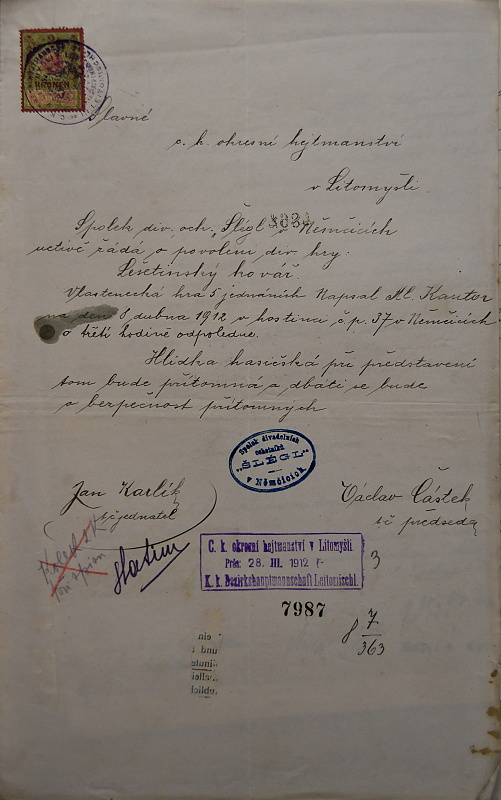 Slavné
c. k. okresní hejtmanství
v Litomyšli.
Spolek div. och. Šlégl v Němčicích
uctivě žádá o povolení div. hry:
Lešetinský kovář.
Vlastenecká hra 5 jednáních Napsal Al. Kantor
na den 8 dubna 1912 v hostinci č.p. 37 v Němčicích
o třetí hodině odpoledne.
Hlídka hasičská při představení
tom bude přítomná a dbáti se bude
o bezpečnost přítomných
Spolek divadelních
ochotníků
"ŠLÉGL"
v Němčicích.
Jan Karlík
tč jednatel
Václav Částek
tč předseda
C. k. okresní hejtmanství v Litomyšli
Präs: 28. III. 1912
K. k. Bezirkshauptmannschaft Leitomischl.
3
7987
8 7/363
ein
und